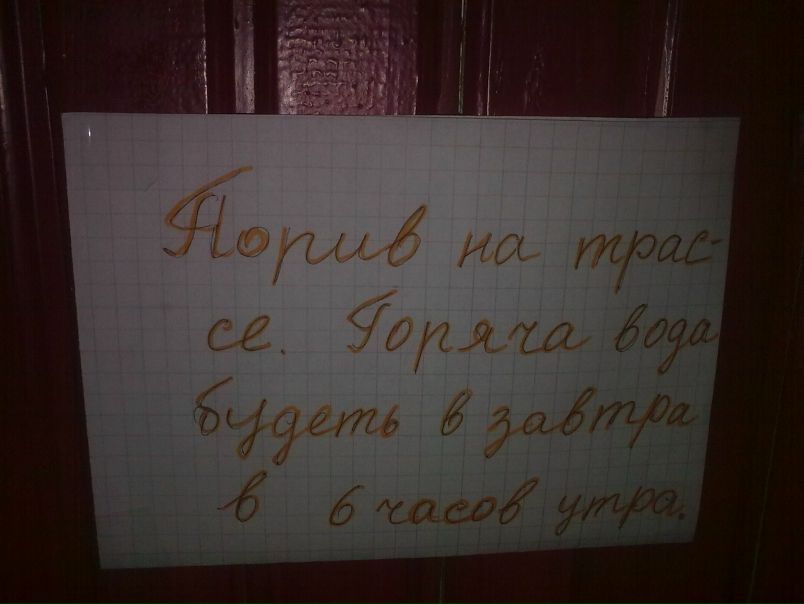 Порив на трас-
се. Горяча вода
будеть в завтра
в 6 часов утра.